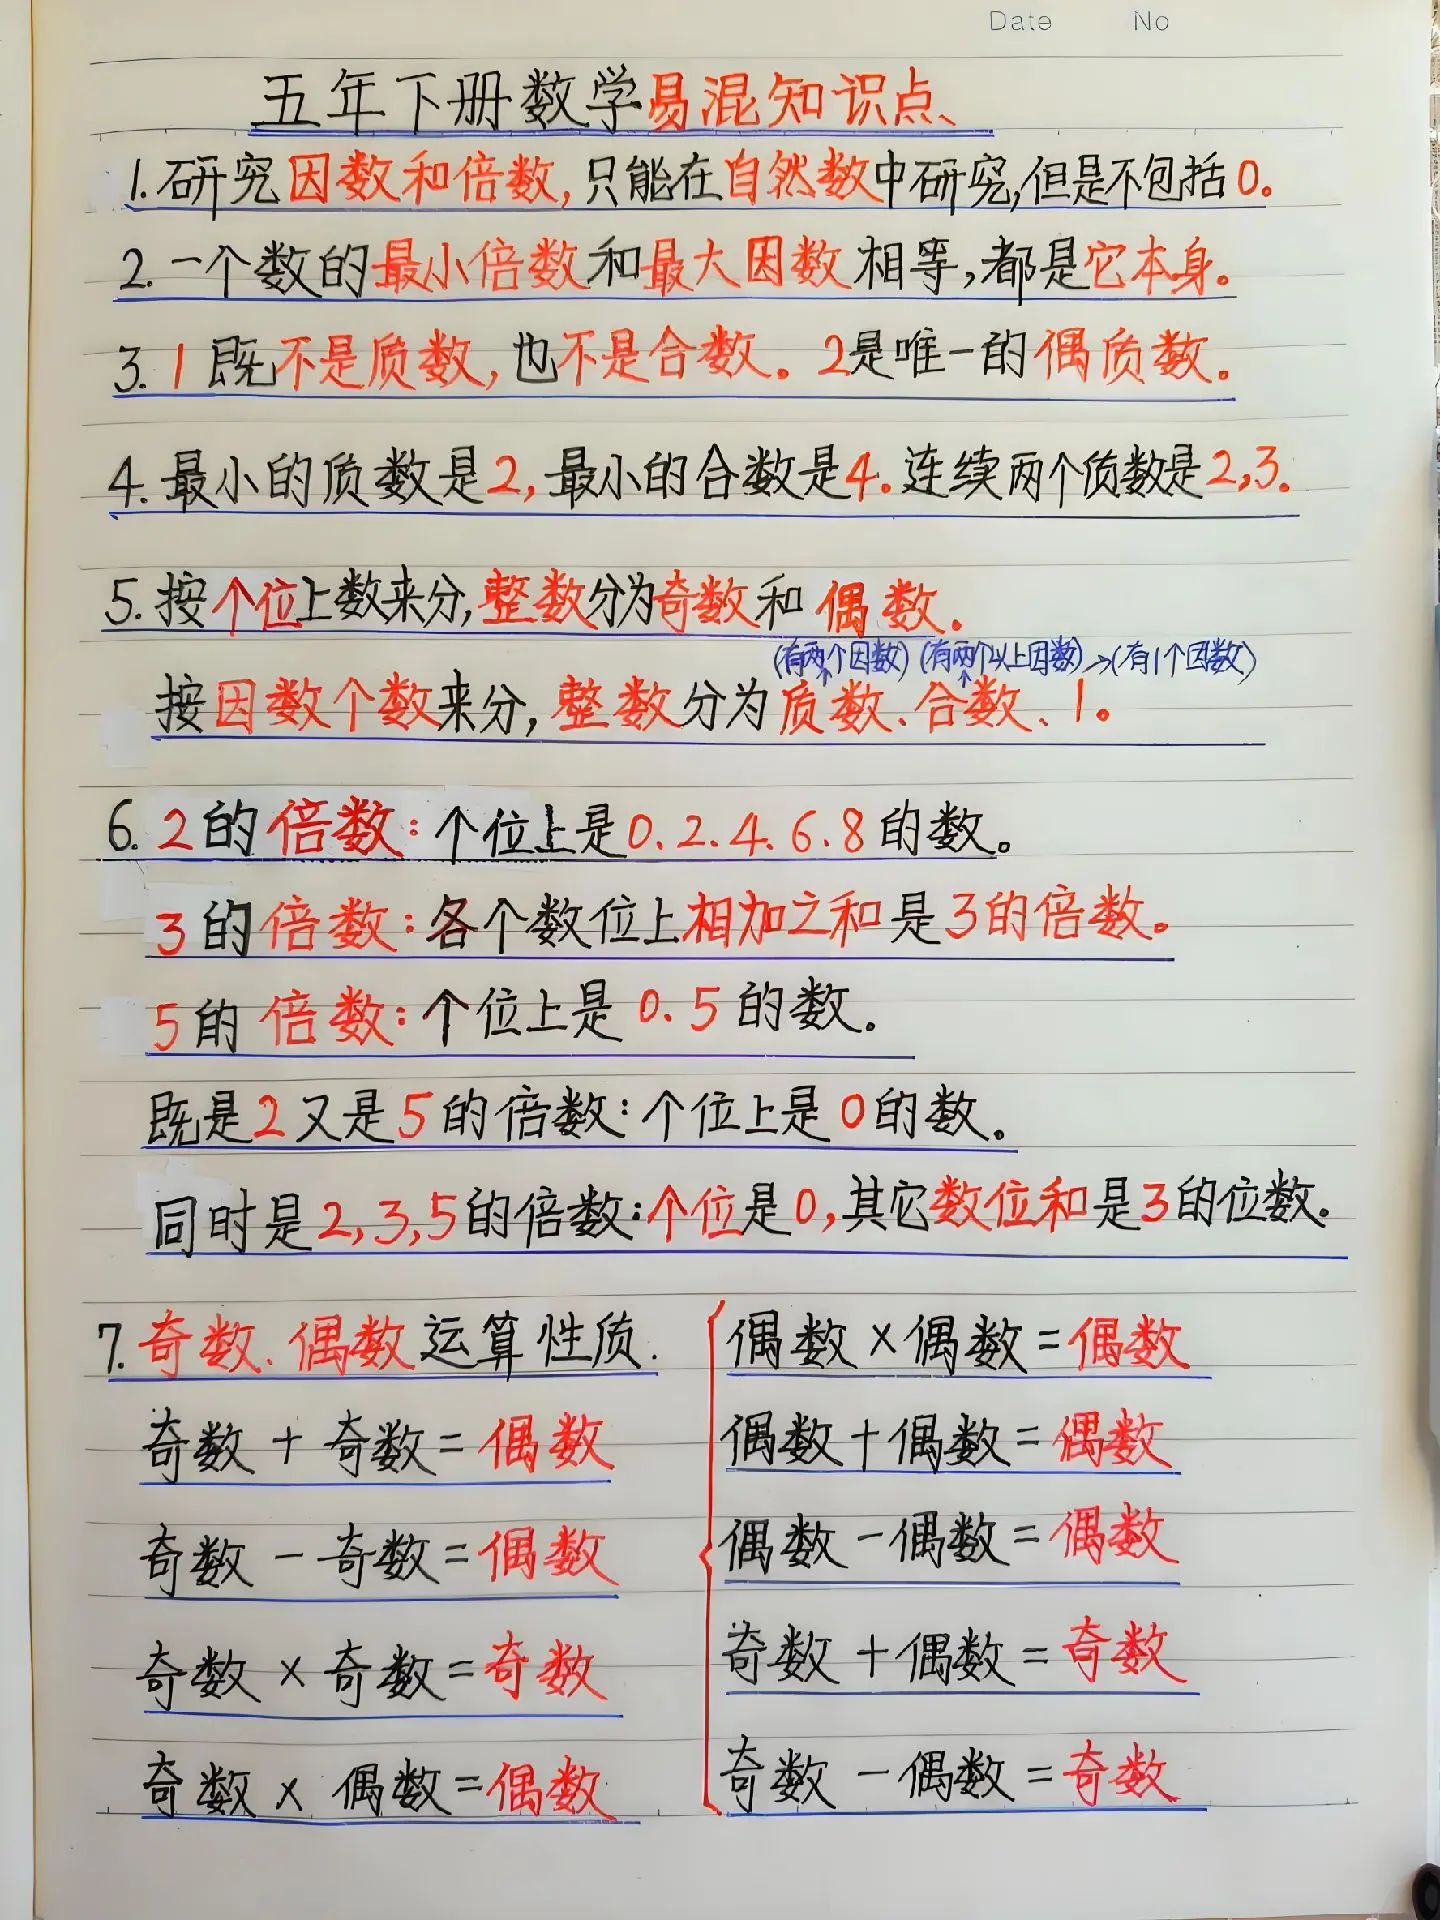 Date No
五年下册数学易混知识点、
1.研究因数和倍数,只能在自然数中研究,但是不包括0。
2.一个数的最小倍数和最大因数相等,都是它本身。
3.1既不是质数,也不是合数。2是唯一的偶质数。
4.最小的质数是2,最小的合数是4.连续两个质数是2,3.
5.按个位上数来分,整数分为奇数和偶数.
(有两个因数)(有两个以上因数)→(有1个因数)
按因数个数来分,整数分为质数、合数、1。
6.2的倍数:个位上是0.2.4.6.8的数。
3的倍数:各个数位上相加之和是3的倍数。
5的倍数:个位上是0.5的数。
既是2又是5的倍数:个位上是0的数。
同时是2,3,5的倍数:个位是0,其它数位和是3的位数.
7.奇数、偶数运算性质.
奇数+奇数=偶数
奇数-奇数=偶数
奇数×奇数=奇数
奇数×偶数=偶数
偶数×偶数=偶数
偶数+偶数=偶数
偶数-偶数=偶数
奇数+偶数=奇数
奇数-偶数=奇数